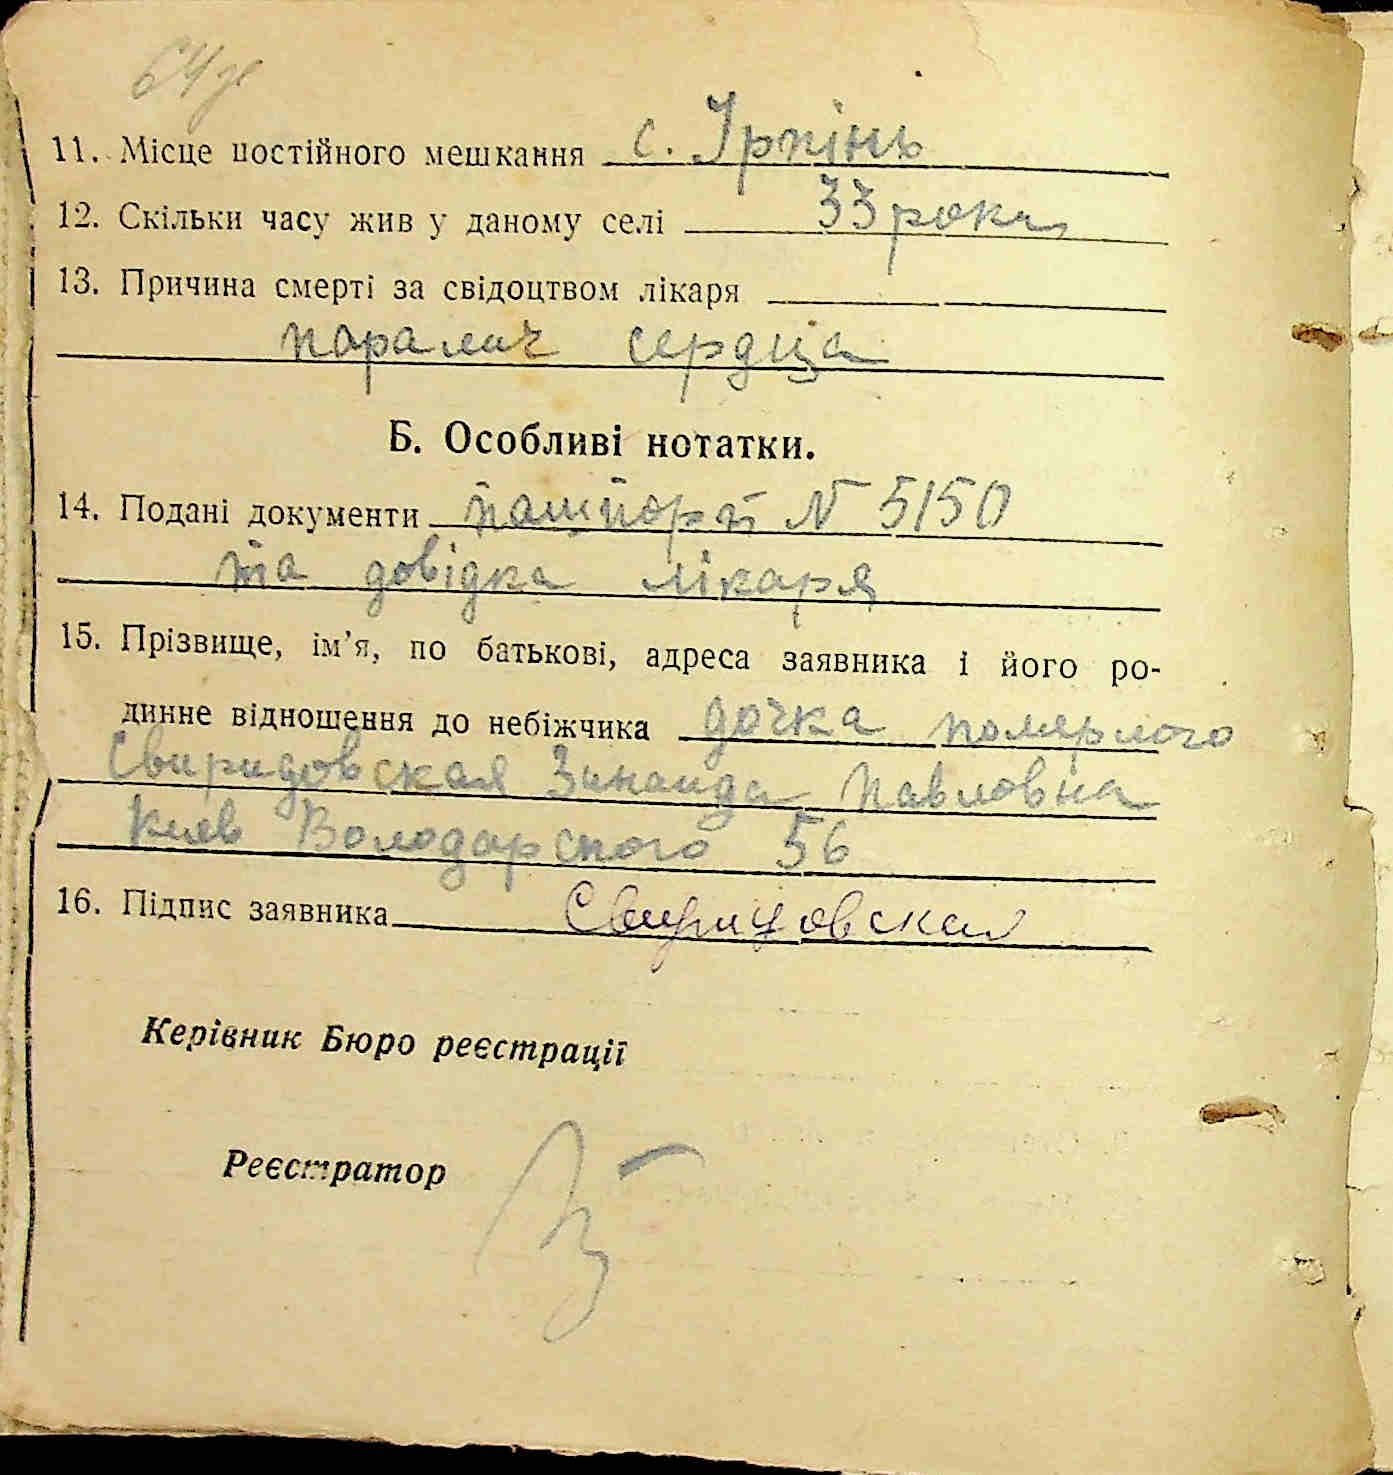 64
11. Місце постійного мешкання с. Ірпінь
12. Скільки часу жив у даному селі 33 рока
13. Причина смерті за свідоцтвом лікаря
паралич сердца
Б. Особливі нотатки.
14. Подані документи пашпорт № 5150
та довідка лікаря
15. Прізвище, ім’я, по батькові, адреса заявника і його ро-
динне відношення до небіжчика дочка померлого
Свиридовская Зинаида Павловна
Киев Володарского 56
16. Підпис заявника Свиридовская
Керівник Бюро реєстрації
Реєстратор